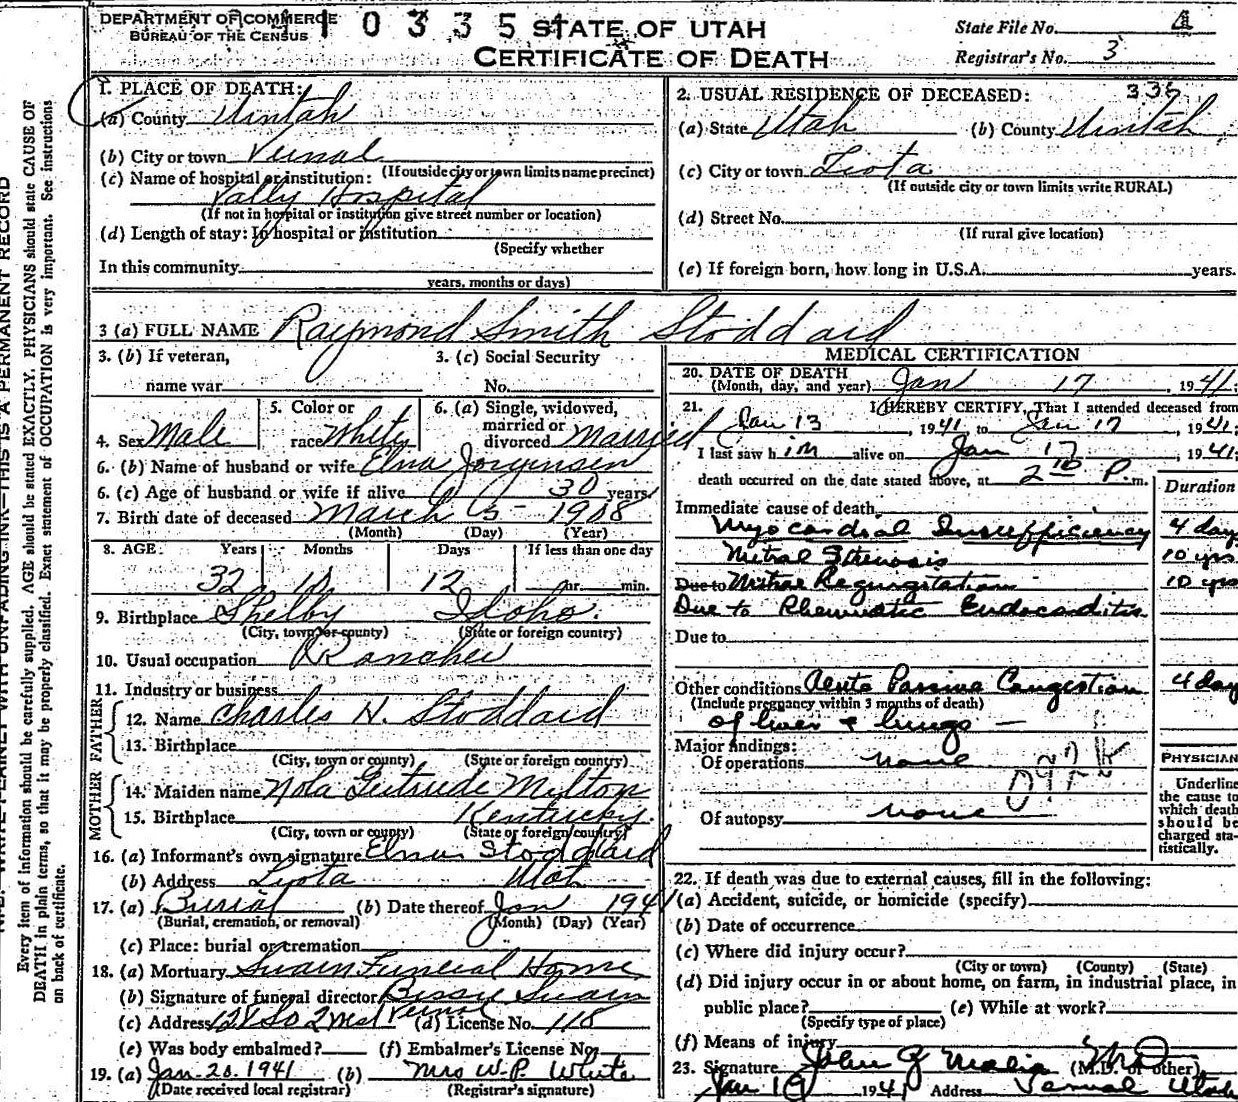 DEPARTMENT OF COMMERCE
BUREAU OF THE CENSUS
STATE OF UTAH
CERTIFICATE OF DEATH
State File No. 4
Registrar's No. 3
1. PLACE OF DEATH:
(a) County Uintah
(b) City or town Vernal
(If outside city or town limits name precinct)
(c) Name of hospital or institution:
Vally Hospital
(If not in hospital or institution give street number or location)
(d) Length of stay: In hospital or institution
(Specify whether
In this community
years, months or days)
2. USUAL RESIDENCE OF DECEASED: 335
(a) State Utah (b) County Uintah
(c) City or town Liota
(If outside city or town limits write RURAL)
(d) Street No.
(If rural give location)
(e) If foreign born, how long in U.S.A. years.
3 (a) FULL NAME Raymond Smith Stoddard
3. (b) If veteran,
name war
3. (c) Social Security
No.
4. Sex Male
5. Color or
race White
6. (a) Single, widowed,
married or
divorced Married
6. (b) Name of husband or wife Elna Jorgensen
6. (c) Age of husband or wife if alive 30 years
7. Birth date of deceased March 5 - 1908
(Month) (Day) (Year)
8. AGE: Years Months Days If less than one day
32 10 12 hr. min.
9. Birthplace Shelby Idaho.
(City, town or county) (State or foreign country)
10. Usual occupation Rancher
11. Industry or business
FATHER
12. Name Charles H. Stoddard
13. Birthplace
(City, town or county) (State or foreign country)
MOTHER
14. Maiden name Nola Gertrude Milton
15. Birthplace Kentucky.
(City, town or county) (State or foreign country)
16. (a) Informant's own signature Elna Stoddard
(b) Address Utah
17. (a) Burial (b) Date thereof Jan 1941
(Burial, cremation, or removal) (Month) (Day) (Year)
(c) Place: burial or cremation
18. (a) Mortuary Swain Funeral Home
(b) Signature of funeral director Bessie Swain
(c) Address 128 So 2 West Vernal (d) License No. 118
(e) Was body embalmed? (f) Embalmer's License No.
19. (a) Jan. 20. 1941 (b) Mrs W.P. White
(Date received local registrar) (Registrar's signature)
MEDICAL CERTIFICATION
20. DATE OF DEATH
(Month, day, and year) Jan 17, 1941;
21. I HEREBY CERTIFY, That I attended deceased from
Jan 13, 1941, to Jan 17, 1941;
I last saw him alive on Jan 17, 1941;
death occurred on the date stated above, at 2 10 P. m.
Duration
Immediate cause of death
Myocardial Insufficiency 4 days
Mitral Stenosis 10 yrs
Due to Mitral Regurgitation 10 yrs
Due to Rheumatic Endocarditis
Due to
Other conditions Acute Passive Congestion 4 day
(Include pregnancy within 3 months of death)
of liver & lungs -
Major findings:
Of operations none
Of autopsy none
PHYSICIAN
Underline
the cause to
which death
should be
charged sta-
tistically.
22. If death was due to external causes, fill in the following:
(a) Accident, suicide, or homicide (specify)
(b) Date of occurrence
(c) Where did injury occur?
(City or town) (County) (State)
(d) Did injury occur in or about home, on farm, in industrial place, in
public place? (e) While at work?
(Specify type of place)
(f) Means of injury
23. Signature John G Malia MD (M.D. or other)
Jan 19 1941 Address Vernal Utah
Every item of information should be carefully supplied. AGE should be stated EXACTLY. PHYSICIANS should state CAUSE OF
DEATH in plain terms, so that it may be properly classified. Exact statement of OCCUPATION is very important. See instructions
on back of certificate.
WRITE PLAINLY WITH UNFADING INK—THIS IS A PERMANENT RECORD